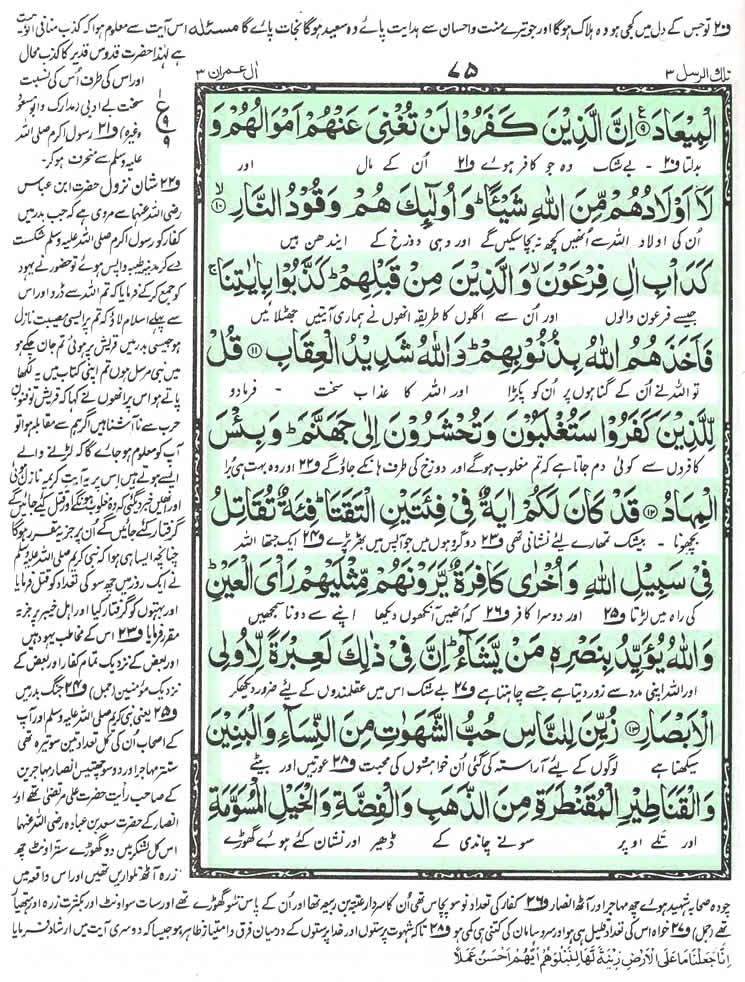 ف۲۰ تو جس کے دل میں کجی ہو وہ ہلاک ہوگا اور جو تیرے منت و احسان سے ہدایت پائے وہ سعید ہوگا نجات پائے گا مسئلہ اس آیت سے معلوم ہوا کہ کذب منافی الوہیت
ہے لہٰذا حضرت قدوس قدیر کا کذب محال
اور اس کی طرف اس کی نسبت
سخت بے ادبی (مدارک و ابو سعود
وغیرہ) ف۲۱ رسول اکرم صلی اللہ
علیہ وسلم سے منحرف ہو کر۔
تلک الرسل ۳
۷۵
اٰل عمران ۳
الْمِيْعَادَ ۹ اِنَّ الَّذِيْنَ كَفَرُوْا لَنْ تُغْنِيَ عَنْهُمْ اَمْوَالُهُمْ وَ
بدلتا ف۲۰ - بے شک وہ جو کافر ہوئے ف۲۱ اُن کے مال اور
لَاۤ اَوْلَادُهُمْ مِّنَ اللّٰهِ شَيْـًٔا وَ اُولٰٓىِٕكَ هُمْ وَقُوْدُ النَّارِ ۱۰
اُن کی اولاد اللہ سے اُنھیں کچھ نہ بچا سکیں گے اور وہی دوزخ کے ایندھن ہیں
كَدَاْبِ اٰلِ فِرْعَوْنَ وَ الَّذِيْنَ مِنْ قَبْلِهِمْ كَذَّبُوْا بِاٰيٰتِنَا
جیسے فرعون والوں اور اُن سے اگلوں کا طریقہ انھوں نے ہماری آیتیں جھٹلائیں
فَاَخَذَهُمُ اللّٰهُ بِذُنُوْبِهِمْ وَ اللّٰهُ شَدِيْدُ الْعِقَابِ ۱۱ قُلْ
تو اللہ نے اُن کے گناہوں پر اُن کو پکڑا اور اللہ کا عذاب سخت - فرما دو
لِّلَّذِيْنَ كَفَرُوْا سَتُغْلَبُوْنَ وَ تُحْشَرُوْنَ اِلٰى جَهَنَّمَ وَ بِئْسَ
کافروں سے کوئی دم جاتا ہے کہ تم مغلوب ہوگے اور دوزخ کی طرف ہانکے جاؤگے ف۲۲ اور وہ بہت ہی بُرا
الْمِهَادُ ۱۲ قَدْ كَانَ لَكُمْ اٰيَةٌ فِيْ فِئَتَيْنِ الْتَقَتَا فِئَةٌ تُقَاتِلُ
بچھونا - بیشک تمھارے لیے نشانی تھی ف۲۳ دو گروہوں میں جو آپس میں بھڑ پڑے ف۲۴ ایک جتھا اللہ
فِيْ سَبِيْلِ اللّٰهِ وَ اُخْرٰى كَافِرَةٌ يَّرَوْنَهُمْ مِّثْلَيْهِمْ رَاْيَ الْعَيْنِ
کی راہ میں لڑتا ف۲۵ اور دوسرا کافر ف۲۶ کہ اُنھیں آنکھوں دیکھا اپنے سے دونا سمجھیں
وَ اللّٰهُ يُؤَيِّدُ بِنَصْرِهٖ مَنْ يَّشَآءُ اِنَّ فِيْ ذٰلِكَ لَعِبْرَةً لِّاُولِي
اور اللہ اپنی مدد سے زور دیتا ہے جسے چاہتا ہے ف۲۷ بے شک اس میں عقلمندوں کے لئے ضرور دیکھ کر
الْاَبْصَارِ ۱۳ زُيِّنَ لِلنَّاسِ حُبُّ الشَّهَوٰتِ مِنَ النِّسَآءِ وَ الْبَنِيْنَ
سیکھنا ہے لوگوں کے لئے آراستہ کی گئی اُن خواہشوں کی محبت ف۲۸ عورتیں اور بیٹے
وَ الْقَنَاطِيْرِ الْمُقَنْطَرَةِ مِنَ الذَّهَبِ وَ الْفِضَّةِ وَ الْخَيْلِ الْمُسَوَّمَةِ
اور تلے اوپر سونے چاندی کے ڈھیر اور نشان کئے ہوئے گھوڑے
ف۲۲ شان نزول حضرت ابن عباس
رضی اللہ عنہما سے مروی ہے کہ جب بدر میں
کفار کو رسول اکرم صلی اللہ علیہ وسلم شکست
دے کر مدینہ طیبہ واپس ہوئے تو حضور نے یہود
کو جمع کر کے فرمایا کہ تم اللہ سے ڈرو اور اس
سے پہلے اسلام لاؤ کہ تم پر ایسی مصیبت نازل
ہو جیسی بدر میں قریش پر ہوئی تم جان چکے ہو
میں نبی مرسل ہوں تم اپنی کتاب میں یہ لکھا
پاتے ہو اس پر انھوں نے کہا کہ قریش تو فنون
حرب سے نا آشنا ہیں اگر ہم سے مقابلہ ہوا تو
آپ کو معلوم ہو جائے گا کہ لڑنے والے
ایسے ہوتے ہیں اس پر یہ آیت کریمہ نازل ہوئی
اور انھیں خبر دی گئی کہ وہ مغلوب ہونگے اور قتل کیے جائیں گے
گرفتار کئے جائیں گے اُن پر جزیہ مقرر ہوگا
چنانچہ ایسا ہی ہوا کہ نبی کریم صلی اللہ علیہ وسلم
نے ایک روز میں چھ سو کی تعداد کو قتل فرمایا
اور بہتوں کو گرفتار کیا اور اہل خیبر پر جزیہ
مقرر فرمایا ف۲۳ اس کے مخاطب یہود ہیں
اور بعض کے نزدیک تمام کفار اور بعض کے
نزدیک مؤمنین (جمل) ف۲۴ جنگ بدر میں
ف۲۵ یعنی نبی کریم صلی اللہ علیہ وسلم اور آپ
کے اصحاب اُن کی کل تعداد تین سو تیرہ تھی
ستتر مہاجر اور دو سو چھتیس انصار مہاجرین
کے صاحب رایت حضرت علی مرتضٰی تھے اور
انصار کے حضرت سعد بن عبادہ رضی اللہ عنہما
اس کل لشکر میں دو گھوڑے ستر اونٹ چھ
زرہ آٹھ تلواریں تھیں اور اس واقعہ میں
چودہ صحابہ شہید ہوئے چھ مہاجر اور آٹھ انصار ف۲۶ کفار کی تعداد نو سو پچاس تھی اُن کا سردار عتبہ بن ربیعہ تھا اور اُن کے پاس سو گھوڑے تھے اور سات سو اونٹ اور بکثرت زرہ اور ہتھیار
تھے (جمل) ف۲۷ خواہ اس کی تعداد قلیل ہی ہو اور سرو سامان کی کتنی ہی کمی ہو ف۲۸ تاکہ شہوت پرستوں اور خدا پرستوں کے درمیان فرق و امتیاز ظاہر ہو جیسا کہ دوسری آیت میں ارشاد فرمایا
اِنَّا جَعَلْنَا مَا عَلَى الْاَرْضِ زِيْنَةً لَّهَا لِنَبْلُوَهُمْ اَيُّهُمْ اَحْسَنُ عَمَلًا